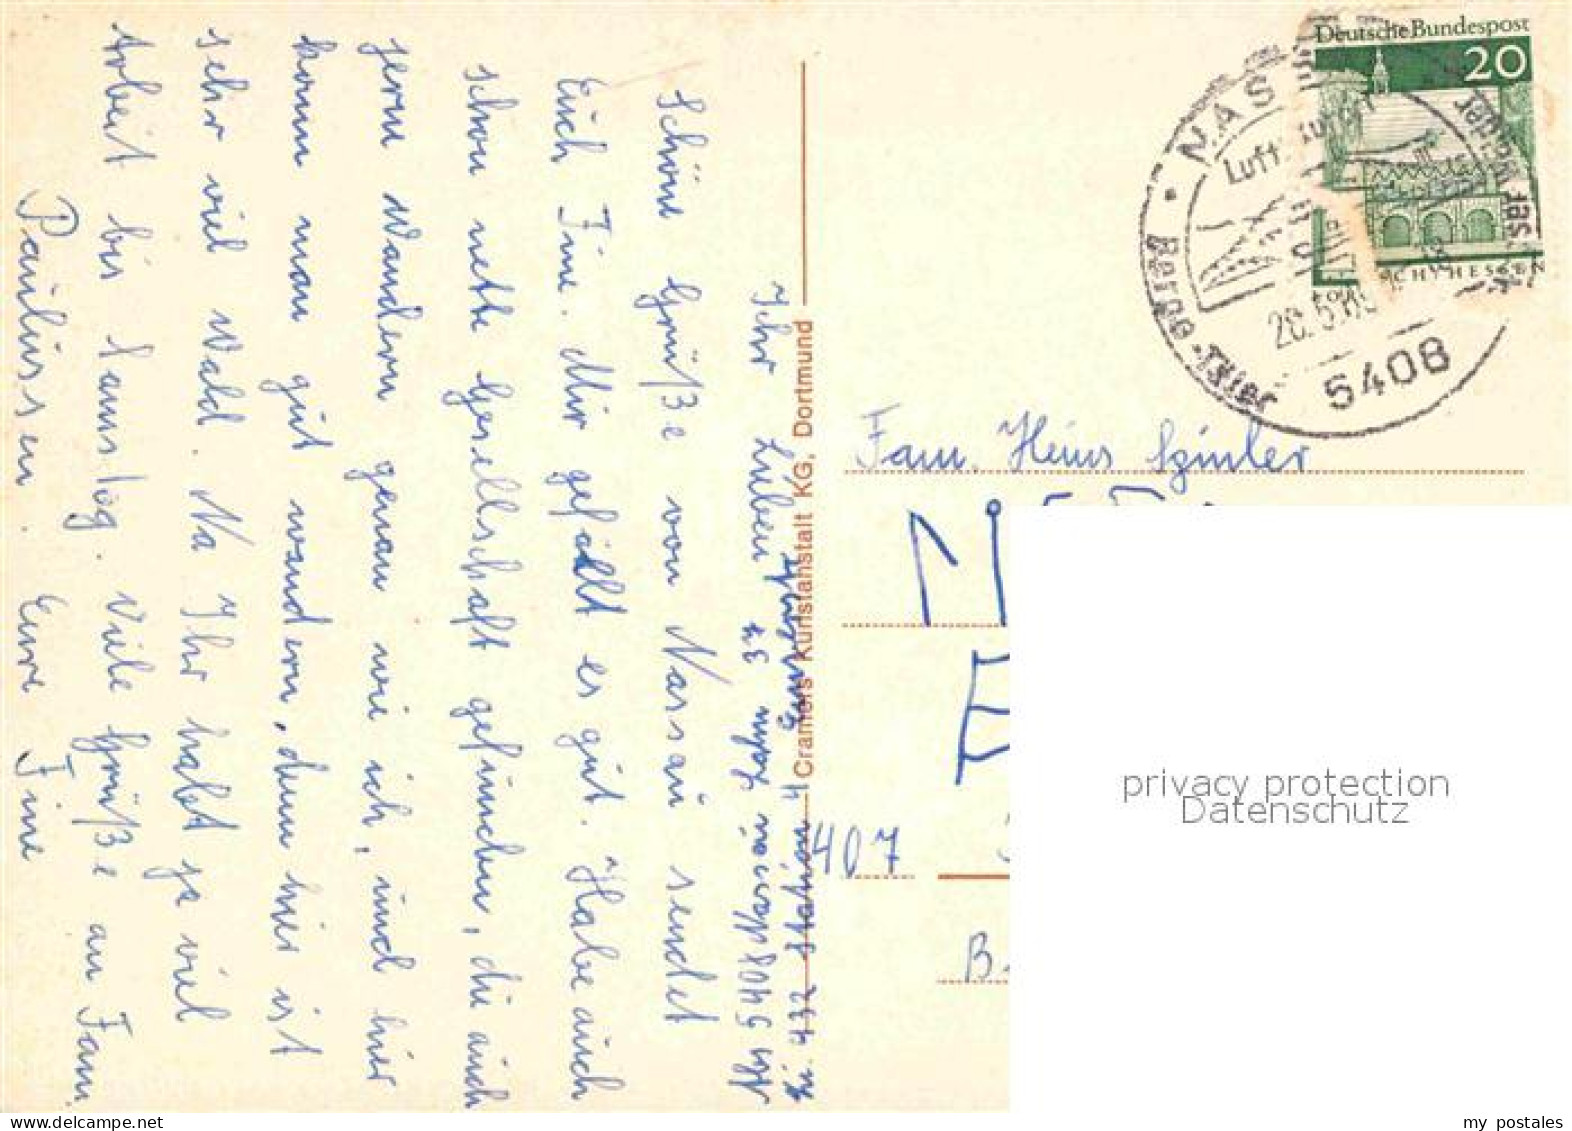 Ihr Lieben
Schöne Grüße von Nassau sendet
Euch Fine. Mir gefällt es gut. Habe auch
schon nette Gesellschaft gefunden, die auch
gern wandern genau wie ich, und hier
kann man gut wandern, denn hier ist
sehr viel Wald. Na Ihr habt ja viel
Arbeit bis Samstag. Viele Grüße an Fam.
Paulussen. Eure Fine
5408 Nassau
432 Station 4
Cramers Kunstanstalt KG, Dortmund
Deutsche Bundespost
20
NAS
Luft
Berge
Täler
Wälder
5408
Fam. Heins
407
B
privacy protection
Datenschutz
my postales